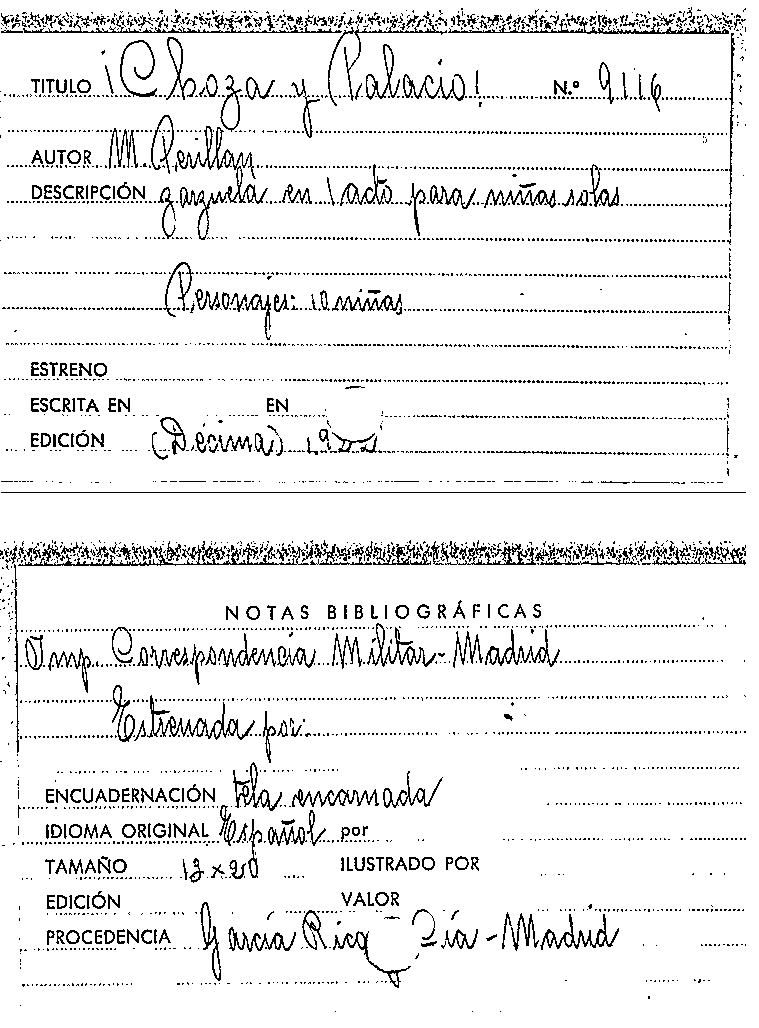 TITULO ¡Choza y Palacio! N.º 9116
AUTOR M. Perillán
DESCRIPCIÓN zarzuela en 1 acto para niñas solas
Personajes: 10 niñas
ESTRENO
ESCRITA EN EN
EDICIÓN (Décima)
NOTAS BIBLIOGRÁFICAS
Imp. Correspondencia Militar - Madrid
Estrenada por:
ENCUADERNACIÓN tela encarnada
IDIOMA ORIGINAL Español por
TAMAÑO 13 x 20 ILUSTRADO POR
EDICIÓN VALOR
PROCEDENCIA García Rico Cía - Madrid